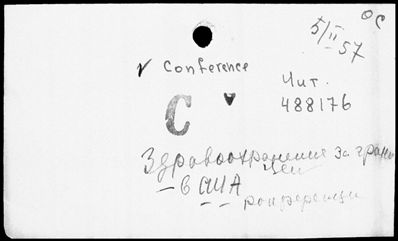 ОС
5/II-57
✓ Conference
Чит.
488176
С
Здравоохранение за грани
цей
– в США
конференции